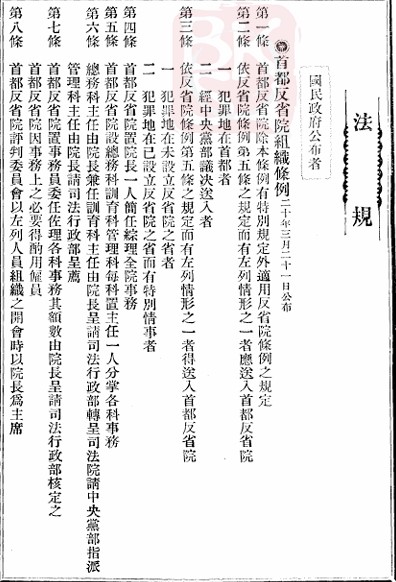 法規
國民政府公布者
首都反省院組織條例 二十年三月二十一日公布
第一條　首都反省院除本條例有特別規定外適用反省院條例之規定
第二條　依反省院條例第五條之規定而有左列情形之一者應送入首都反省院
一　犯罪地在首都者
二　經中央黨部議決送入者
第三條　依反省院條例第五條之規定而有左列情形之一者得送入首都反省院
一　犯罪地在未設立反省院之省者
二　犯罪地在已設立反省院之省而有特別情事者
第四條　首都反省院置院長一人簡任綜理全院事務
第五條　首都反省院設總務科訓育科管理科每科置主任一人分掌各科事務
第六條　總務科主任由院長兼任訓育科主任由院長呈請司法行政部轉呈司法院請中央黨部指派
管理科主任由院長請司法行政部呈薦
第七條　首都反省院置事務員委任佐理各科事務其額數由院長呈請司法行政部核定之
首都反省院因事務上之必要得酌用僱員
第八條　首都反省院評判委員會以左列人員組織之開會時以院長爲主席